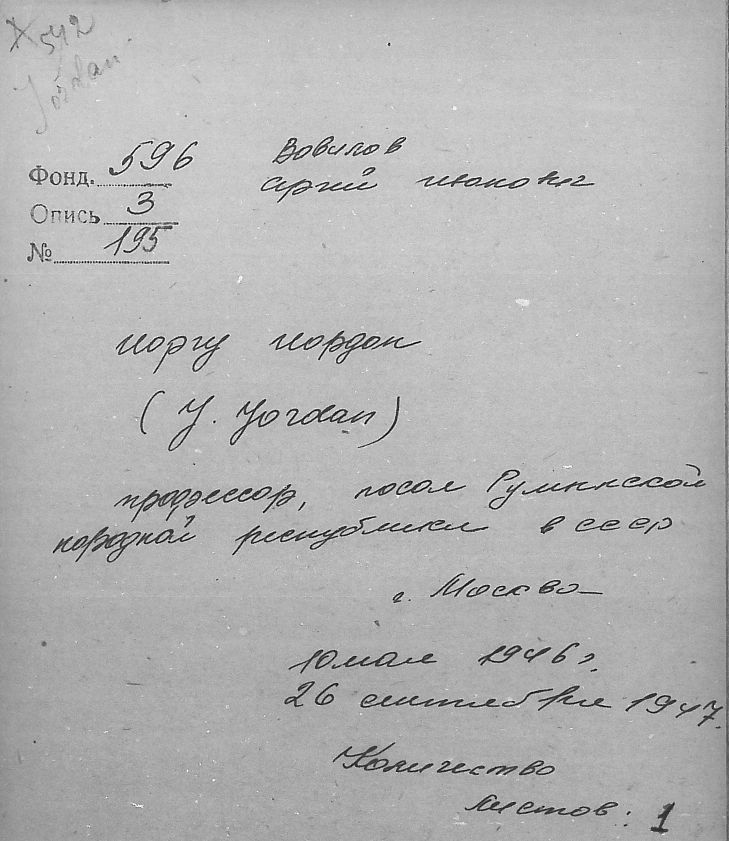 X 542
Jordan
Фонд. 596
Опись 3
№ 195
Вавилов
Сергей Иванович
Иоргу Иордан
(Y. Yordan)
профессор, посол Румынской
народной республики в СССР
г. Москва
10 мая 1946 г.
26 сентября 1947.
Количество
листов: 1